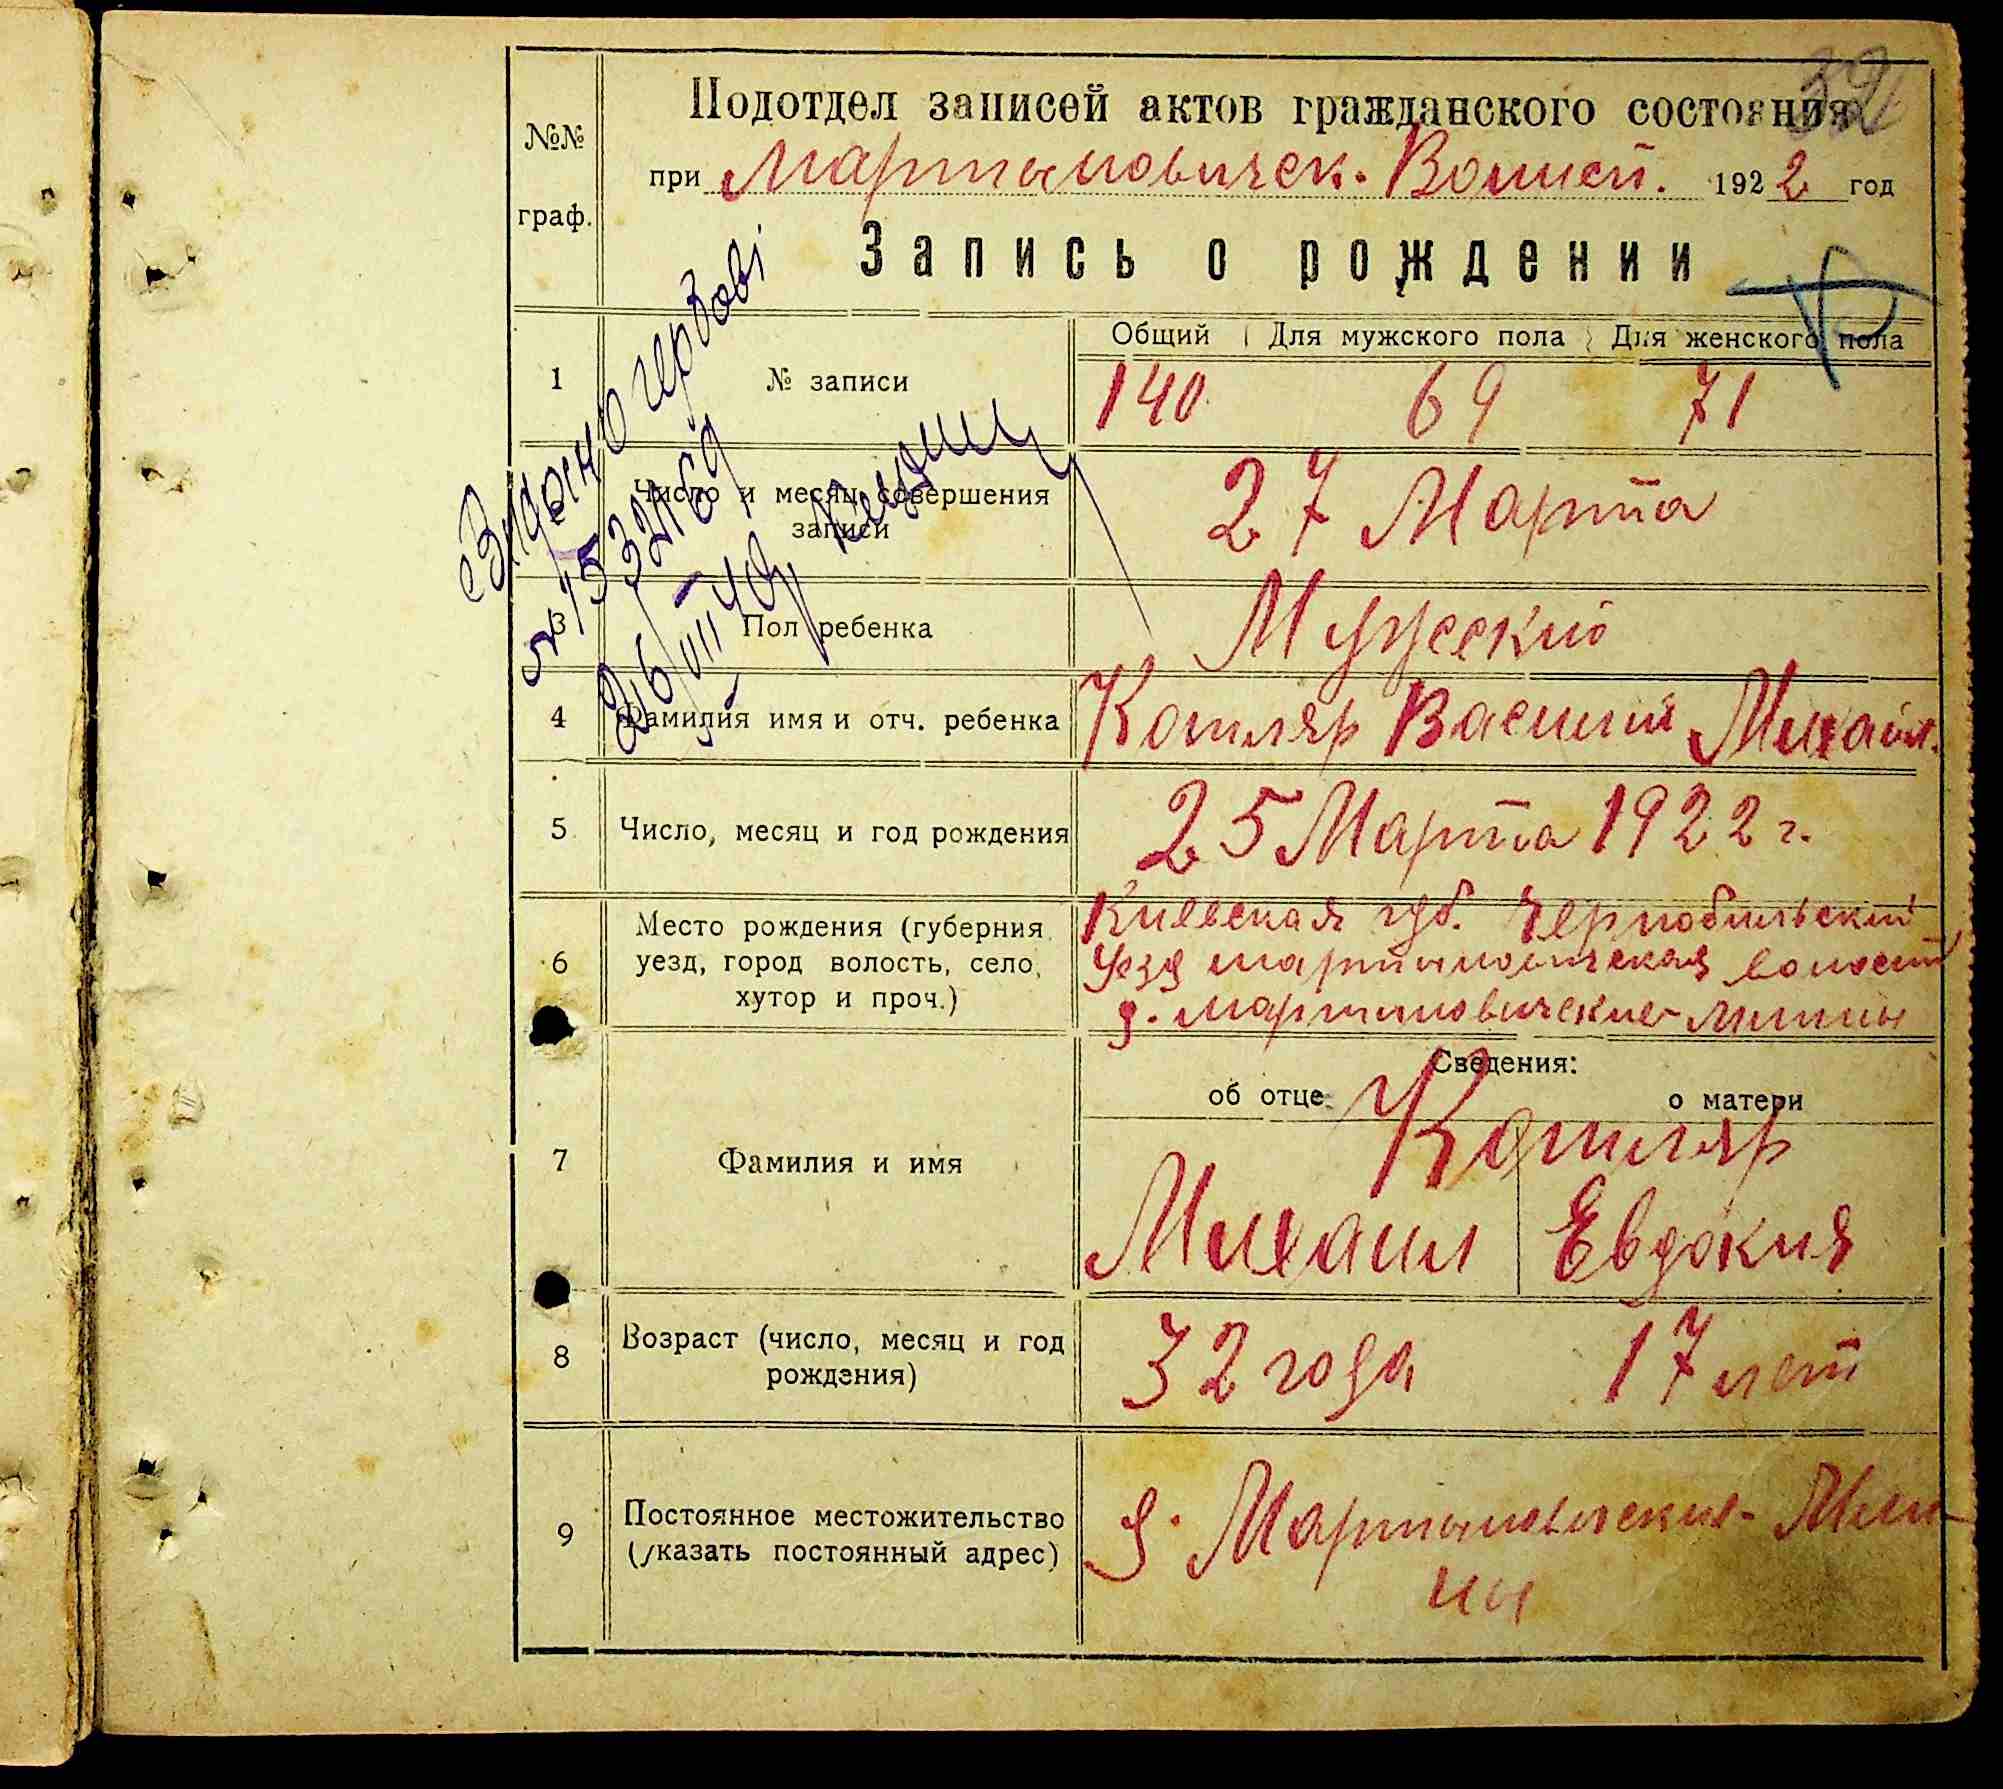 32
Подотдел записей актов гражданского состояния
при Мартыновическ. Волисп. 1922 год
Запись о рождении
№№
граф.
Общий Для мужского пола Для женского пола
1 № записи 140 69 71
2 Число и месяц совершения
записи
27 Марта
3 Пол ребенка Мужеский
4 Фамилия имя и отч. ребенка Котляр Василий Михайл.
5 Число, месяц и год рождения 25 Марта 1922 г.
6 Место рождения (губерния
уезд, город волость, село,
хутор и проч.)
Киевская губ. Чернобильский
Уезд мартыновическая волость
д. мартыновические-
Сведения:
об отце о матери
7 Фамилия и имя Котляр
Михаил Евдокия
8 Возраст (число, месяц и год
рождения)
32 года 17 лет
9 Постоянное местожительство
(указать постоянный адрес)
д. Мартыновические-
Видано
26/VIII